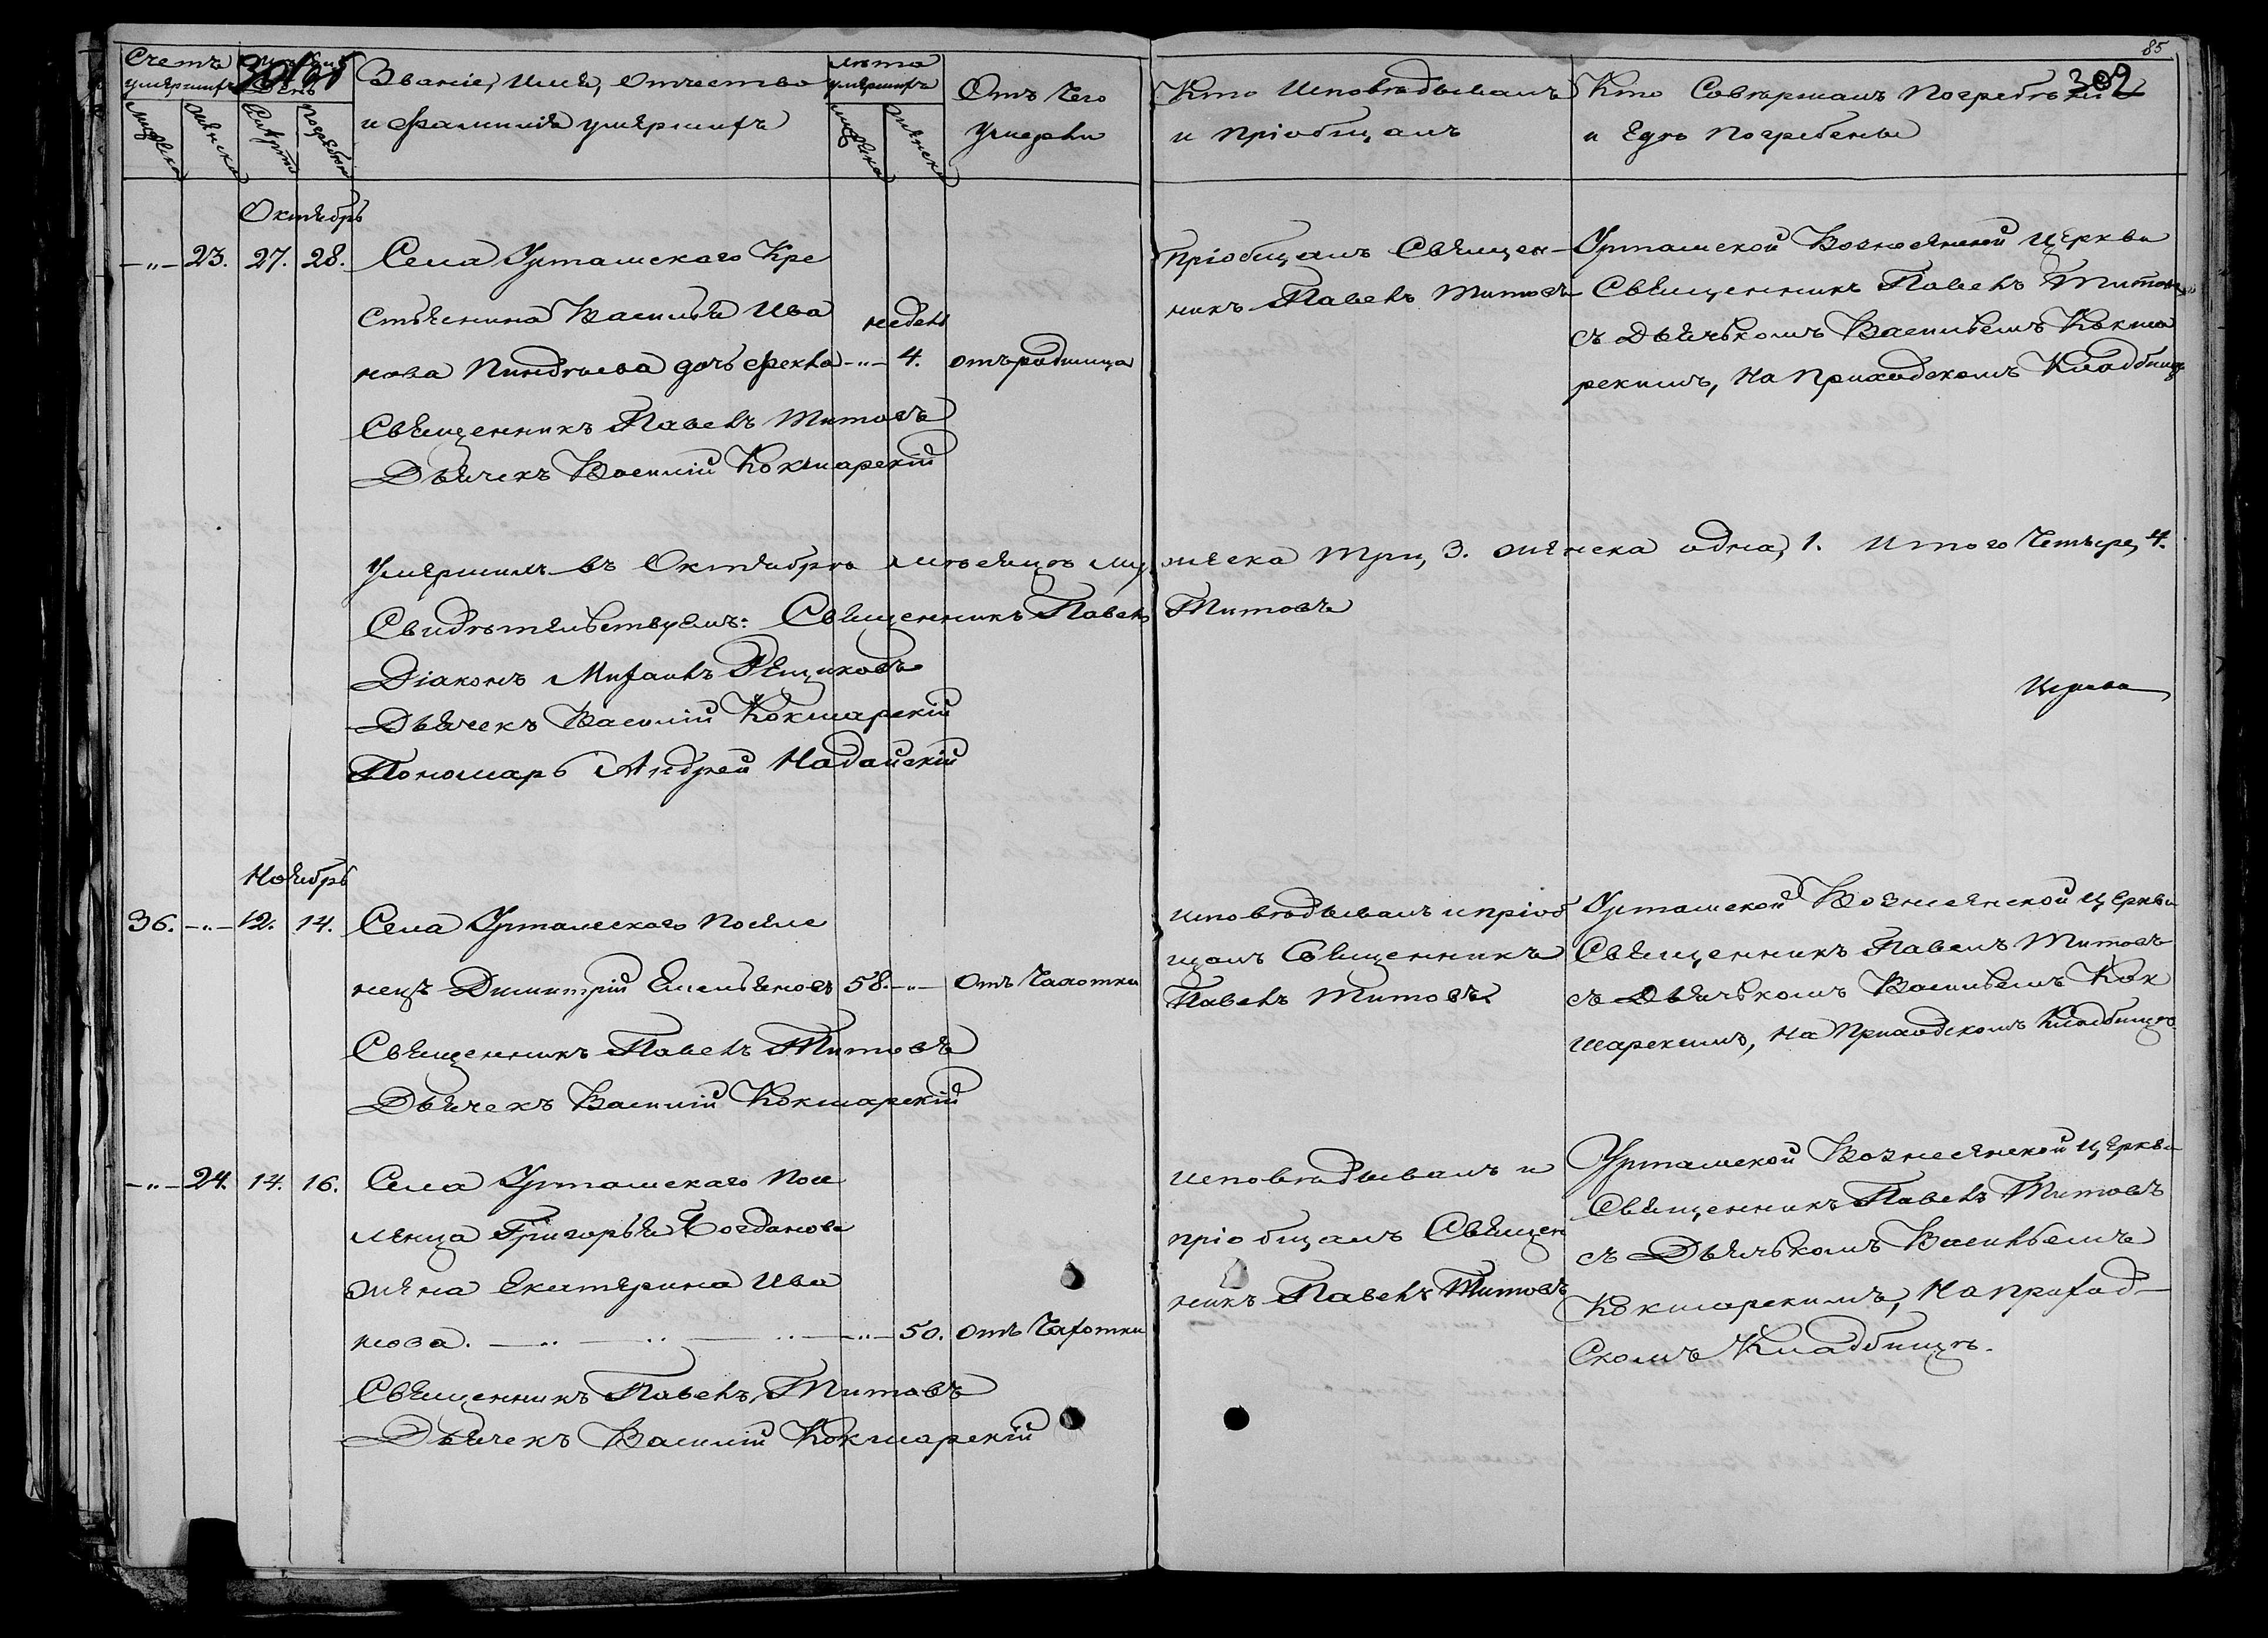 85
302
Счетъ умершихъ
день
Мужеска
Женска
Смерти
Погребенія
Званіе, Имя, Отчество
и Фамилія умершихъ
Лѣта умершихъ
Мужеска
Женска
Отъ Чего
Умерли
Кто Исповѣдывалъ
и Пріобщалъ
Кто Совершалъ Погребеніе
и Гдѣ Погребены
Октябрь
—"— 23. 27. 28. Села Урташскаго Кре
стьянина Василья Ива
недель
нова дочь Фекла —"— 4. отъ родимца
Священникъ Павелъ Титовъ
Дьячекъ Василій Кокшарскій
Пріобщалъ Священ-
никъ Павелъ Титовъ
Урташской Вознесенской Церкви
Священникъ Павелъ Титовъ
съ Дьячькомъ Васильемъ Кокша
рскимъ, На Приходскомъ Кладбищѣ
Умершихъ въ Октябрѣ мѣсяцѣ му жеска Три, 3. женска одна, 1. Итого Четыре, 4.
Свидѣтельствуемъ: Священникъ Павелъ Титовъ
Діаконъ Михаилъ
Дьячекъ Василій Кокшарскій
Пономарь Андрей Надайскій
Ноябрь
36. —"— 12. 14. Села Урташскаго Поселе
нецъ Димитрій Емельяновъ 58. —"— Отъ Чахотки
Священникъ Павелъ Титовъ
Дьячекъ Василій Кокшарскій
Исповѣдывалъ и пріоб
щалъ Священникъ
Павелъ Титовъ.
Урташской Вознесенской Церкви
Священникъ Павелъ Титовъ
съ Дьячькомъ Васильемъ Кок
шарскимъ, На Приходскомъ Кладбищѣ
—"— 24. 14. 16. Села Урташскаго Посе
ленца Григорья Богданова
жена Екатерина Ива
нова. —"— 50. отъ Чахотки
Священникъ Павелъ Титовъ
Дьячекъ Василій Кокшарскій
Исповѣдывалъ и
пріобщалъ Священ
никъ Павелъ Титовъ
Урташской Вознесенской Церкви
Священникъ Павелъ Титовъ
съ Дьячькомъ Васильемъ
Кокшарскимъ, На Приход-
Скомъ Кладбищѣ.